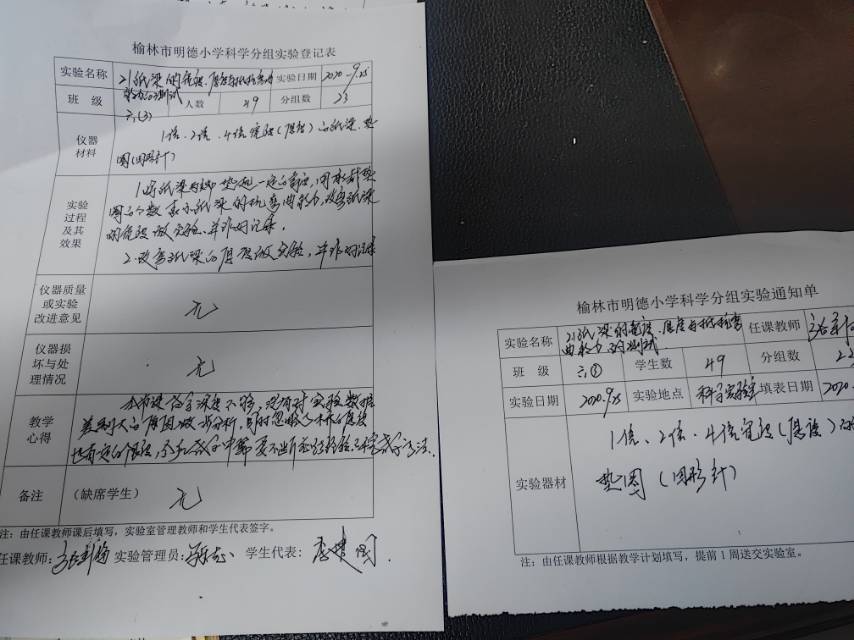 榆林市明德小学科学分组实验登记表
实验名称 2.1纸梁的宽度、厚度与抗弯曲 实验日期 2020.9.25
能力的测试
班 级 六(3) 人数 49 分组数 23
仪器材料
1倍、2倍、4倍宽度(厚度)的纸梁、垫
圈(回形针)
实验过程及其效果
1.将纸梁两脚垫起一定的高度,用
圈的个数表示纸梁的抗弯曲能力,改变纸梁
的宽度做实验、并作好记录。
2.改变纸梁的厚度做实验,并作好记录
仪器质量或实验改进意见
无
仪器损坏与处理情况
无
教学心得
本节课备课深度不够,没有对实验数据
差别大的原因做分析,
备注 (缺席学生) 无
注:由任课教师课后填写,实验室管理教师和学生代表签字。
任课教师: 实验管理员: 学生代表:
榆林市明德小学科学分组实验通知单
实验名称 2.1纸梁的宽度、厚度与抗弯 任课教师
曲能力的测试
班 级 六 学生数 49 分组数
实验日期 2020.9.25 实验地点 科学实验室 填表日期 2020.
实验器材
1倍、2倍、4倍宽度(厚度)
垫圈(回形针)
注:由任课教师根据教学计划填写,提前1周送交实验室。